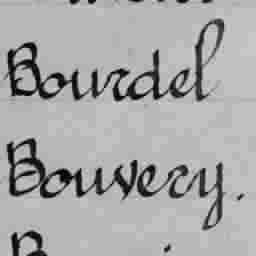 Bourdel
Bouvery.